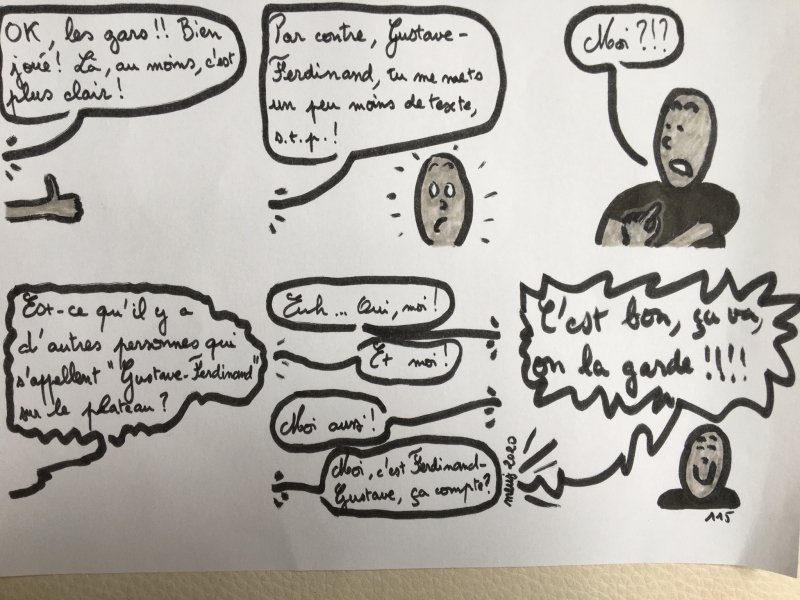 OK, les gars !! Bien
joué ! Là, au moins, c'est
plus clair !
Par contre, Gustave-
Ferdinand, tu me mets
un peu moins de texte,
s.t.p. !
Moi ?!?
Est-ce qu'il y a
d'autres personnes qui
s'appellent "Gustave-Ferdinand"
sur le plateau ?
Euh... Oui, moi !
Et moi !
Moi aussi !
Moi, c'est Ferdinand-
Gustave, ça compte ?
C'est bon, ça va,
on la garde !!!!
2020
115